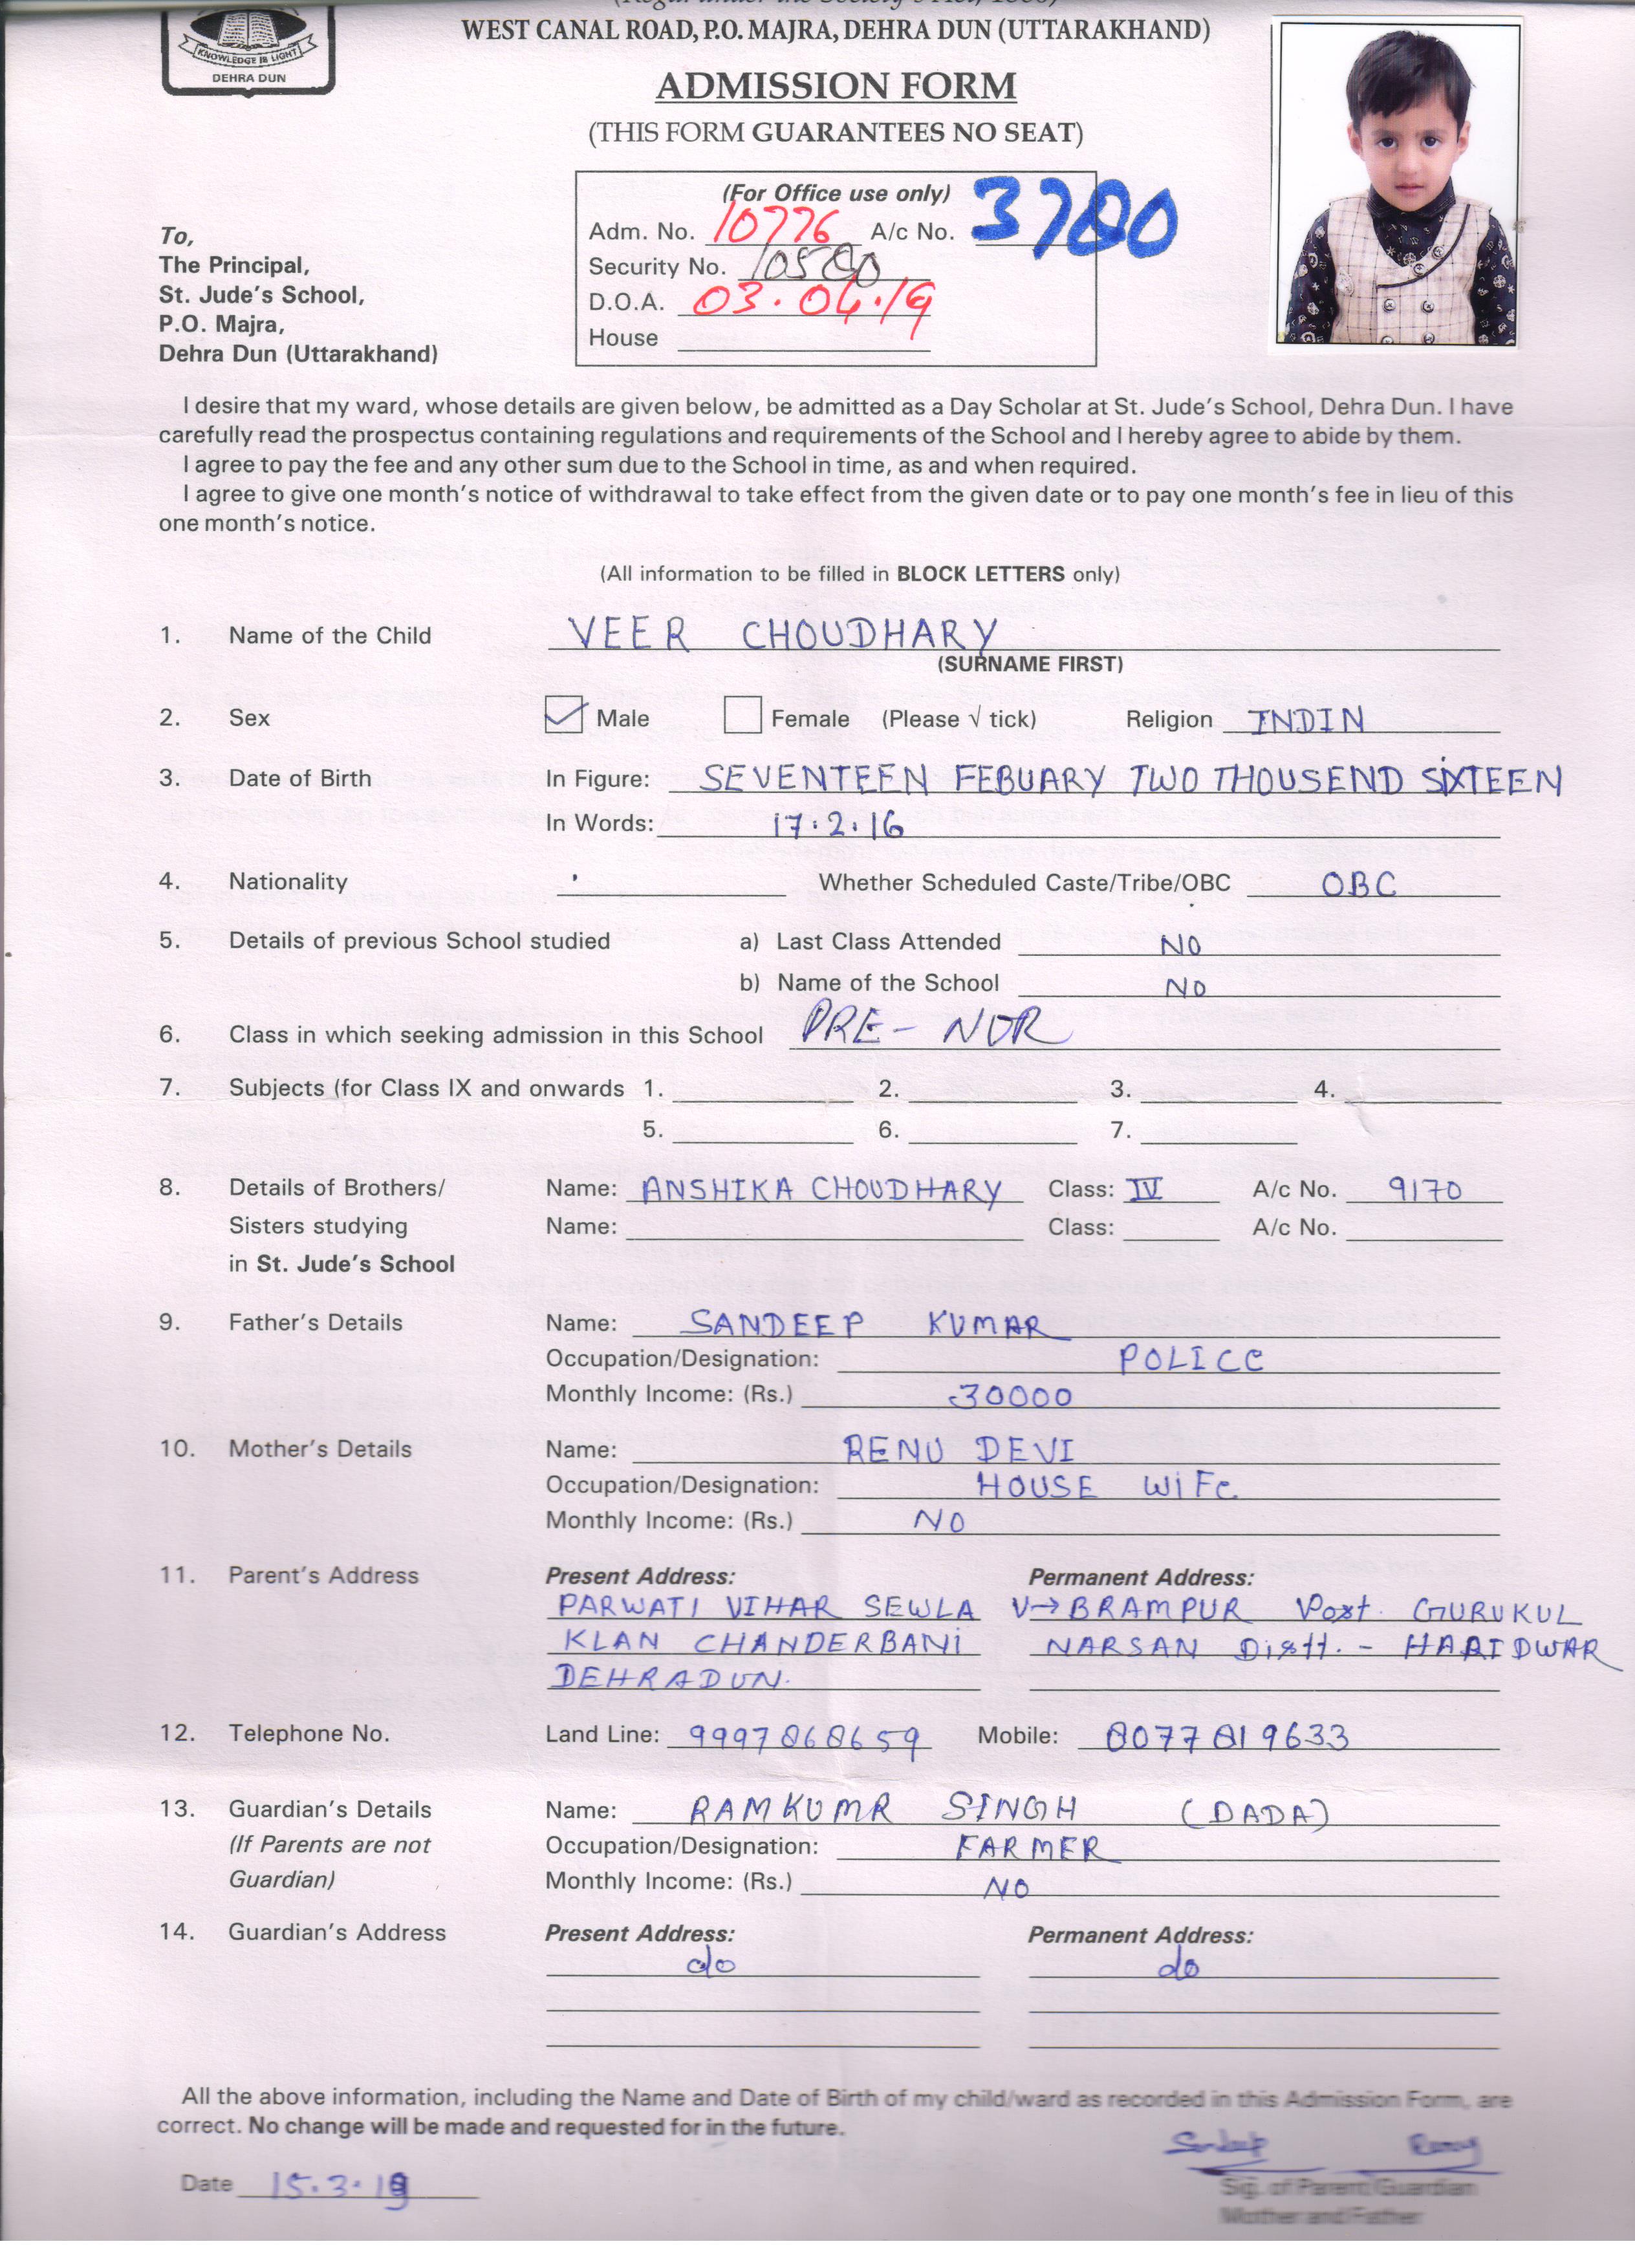 WEST CANAL ROAD, P.O. MAJRA, DEHRA DUN (UTTARAKHAND)
KNOWLEDGE IS LIGHT
DEHRA DUN
ADMISSION FORM
(THIS FORM GUARANTEES NO SEAT)
(For Office use only)
Adm. No. 10776 A/c No. 3780
Security No. 10580
D.O.A. 03.04.19
House
To,
The Principal,
St. Jude's School,
P.O. Majra,
Dehra Dun (Uttarakhand)
I desire that my ward, whose details are given below, be admitted as a Day Scholar at St. Jude's School, Dehra Dun. I have
carefully read the prospectus containing regulations and requirements of the School and I hereby agree to abide by them.
I agree to pay the fee and any other sum due to the School in time, as and when required.
I agree to give one month's notice of withdrawal to take effect from the given date or to pay one month's fee in lieu of this
one month's notice.
(All information to be filled in BLOCK LETTERS only)
1. Name of the Child VEER CHOUDHARY
(SURNAME FIRST)
2. Sex Male Female (Please √ tick) Religion INDIN
3. Date of Birth In Figure: SEVENTEEN FEBUARY TWO THOUSEND SIXTEEN
In Words: 17.2.16
4. Nationality Whether Scheduled Caste/Tribe/OBC OBC
5. Details of previous School studied a) Last Class Attended NO
b) Name of the School NO
6. Class in which seeking admission in this School PRE - NUR
7. Subjects (for Class IX and onwards 1. 2. 3. 4.
5. 6. 7.
8. Details of Brothers/ Name: ANSHIKA CHOUDHARY Class: IV A/c No. 9170
Sisters studying Name: Class: A/c No.
in St. Jude's School
9. Father's Details Name: SANDEEP KUMAR
Occupation/Designation: POLICE
Monthly Income: (Rs.) 30000
10. Mother's Details Name: RENU DEVI
Occupation/Designation: HOUSE WIFE
Monthly Income: (Rs.) NO
11. Parent's Address Present Address: Permanent Address:
PARWATI VIHAR SEWLA V→BRAMPUR Post. GURUKUL
KLAN CHANDERBANI NARSAN Distt. - HARIDWAR
DEHRADUN.
12. Telephone No. Land Line: 9997868659 Mobile: 8077819633
13. Guardian's Details Name: RAMKUMR SINGH (DADA)
(If Parents are not Occupation/Designation: FARMER
Guardian) Monthly Income: (Rs.) NO
14. Guardian's Address Present Address: Permanent Address:
do do
All the above information, including the Name and Date of Birth of my child/ward as recorded in this Admission Form, are
correct. No change will be made and requested for in the future.
Sandeep
Date 15.3.19 Sig. of Parent/Guardian
Mother and Father